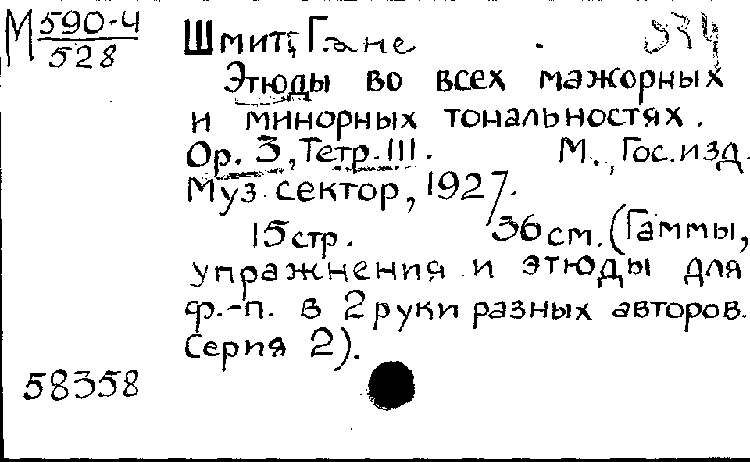 М 590-4
528
Шмит, Гане
534
Этюды во всех мажорных
и минорных тональностях.
Op. 3, Тетр. III. М., Гос. изд.
Муз. сектор, 1927.
15 стр. 36 см. (Гаммы,
упражнения и этюды для
ф.-п. в 2 руки разных авторов.
Серия 2).
58358